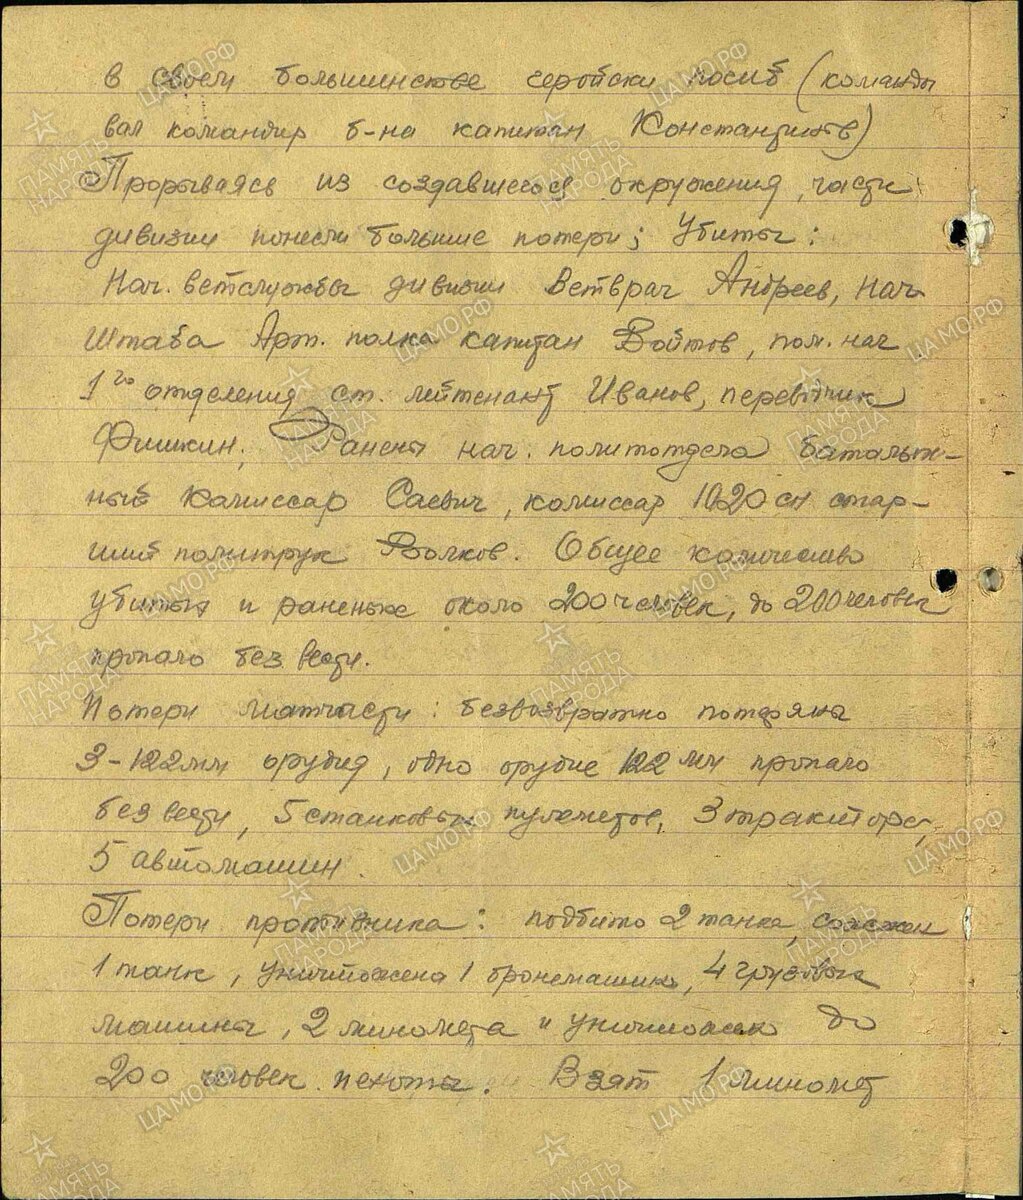 в своем большинстве геройски погиб (командо
вал командир б-на капитан Константинов)
Прорываясь из создавшегося окружения, части
дивизии понесли большие потери; Убиты:
Нач. ветслужбы дивизии Ветврач Андреев, нач
штаба Арт. полка капитан Войтов, пом. нач.
1го отделения ст. лейтенант Иванов, переводчик
Фишкин. Ранены нач. политотдела батальон-
ный комиссар Савич, комиссар 1020 сп стар-
ший политрук Волков. Общее количество
убитых и раненых около 200 человек, до 200 человек
пропало без вести.
Потери матчасти: безвозвратно потеряны
3-122 мм орудия, одно орудие 122 мм пропало
без вести, 5 станковых пулеметов, 3 трактора,
5 автомашин.
Потери противника: подбито 2 танка, сожжен
1 танк, уничтожена 1 бронемашина, 4 грузовых
машины, 2 миномета и уничтожено до
200 человек пехоты. Взят 1 миномет
ЦАМО.РФ
ПАМЯТЬ НАРОДА